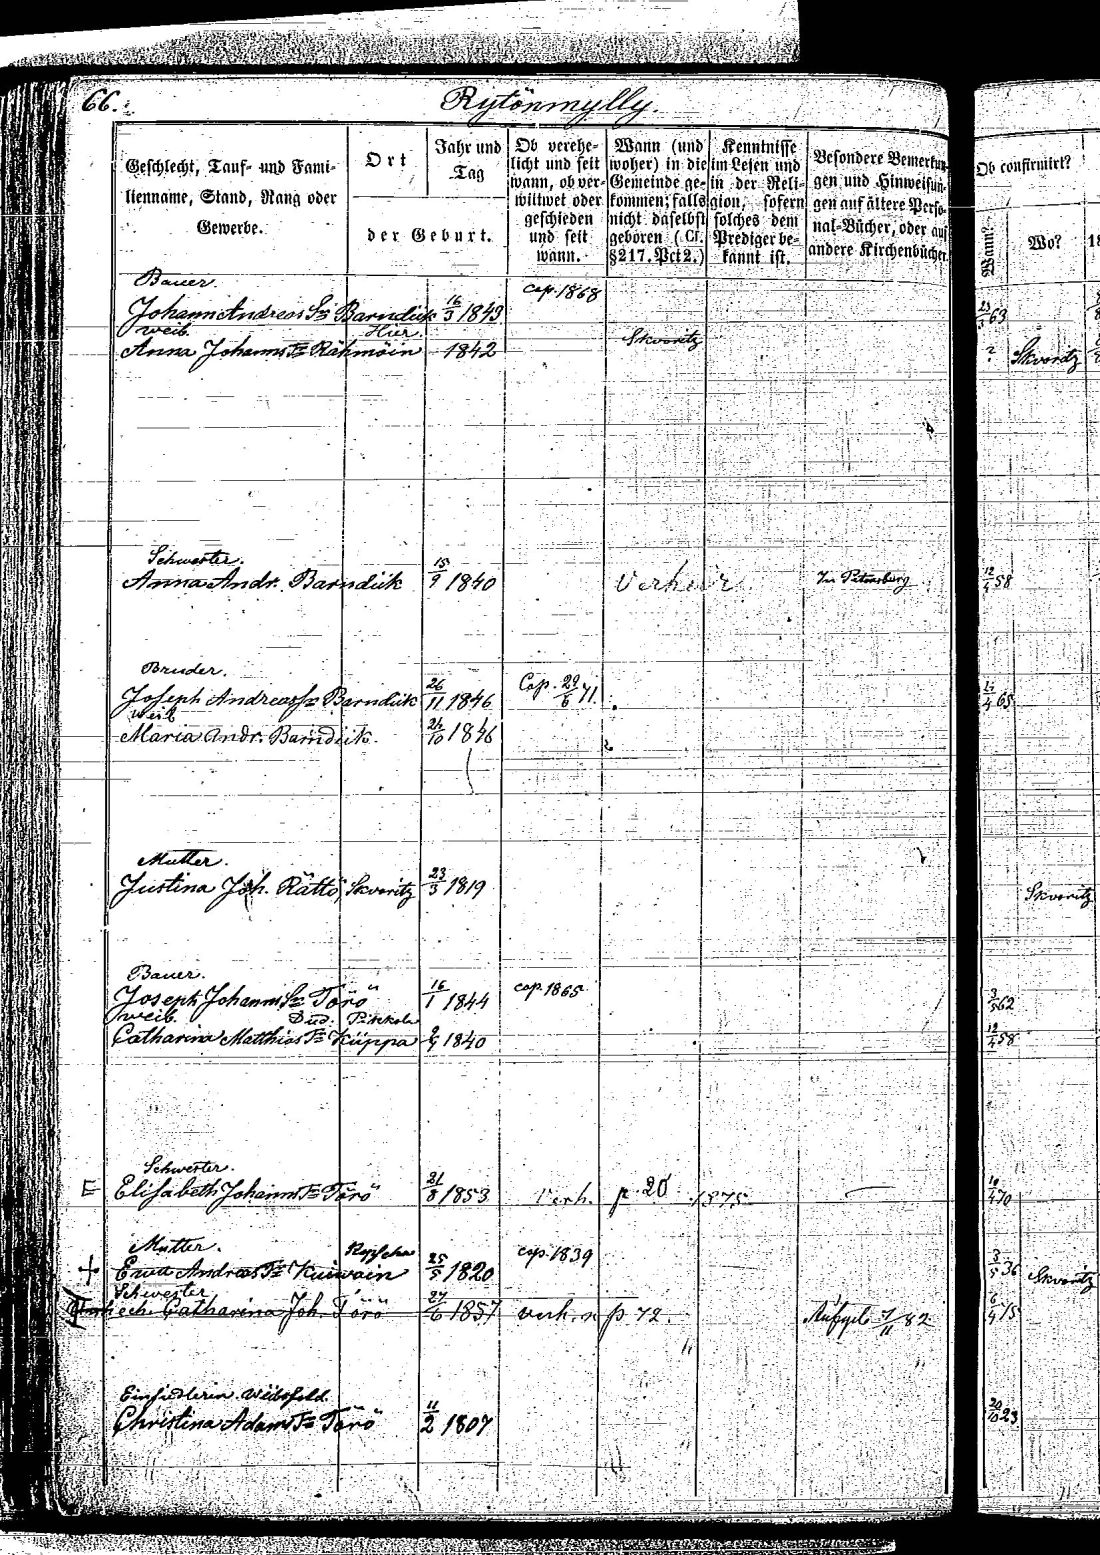 66.
Rytönmylly.
Geschlecht, Tauf- und Fami-
lienname, Stand, Rang oder
Gewerbe.
Ort
der Geburt.
Jahr und
Tag
Ob verehe-
licht und seit
wann, ob ver-
wittwet oder
geschieden
und seit
wann.
Wann (und
woher) in die
Gemeinde ge-
kommen; falls
nicht daselbst
geboren (Cf.
§217. Pct 2.)
Kenntnisse
im Lesen und
in der Reli-
gion, sofern
solches dem
Prediger be-
kannt ist.
Besondere Bemerkun-
gen und Hinweisun-
gen auf ältere Perso-
nal-Bücher, oder auf
andere Kirchenbücher.
Ob confirmirt?
Wann?
Wo?
Bauer. cop. 1868
Johann Andreas Sn Barndiik 16/3 1843 23/3 63
Weib. Hier. Skvoritz
Anna Johanns Tr Rähmöin 1842 ? Skvoritz
Schwester.
Anna Andr. Barndiik 15/9 1840 Verheir. In Petersburg 12/4 58
Bruder.
Joseph Andreas Sn Barndiik 26/11 1846 Cop. 29/6 71.
Weib
Maria Andr. Barndiik 26/10 1846
Mutter.
Justina Joh. Rättö, Skvoritz 23/3 1819 Skvoritz
Bauer.
Joseph Johanns Sn Törö 16/1 1844 cop. 1865 3/5 62
Weib. Dud. Pikkola
Catharina Matthias Tr Küppa 9/9 1840 12/4 58
Schwester.
E Elisabeth Johanns Tr Törö 21/8 1853 Verh. p 20 1875 19/4 70
Mutter. Ropscha cop. 1839
+ Ewa Andreas Tr Kuiwain 25/5 1820 3/5 36 Skvoritz
Schwester
Catharina Joh. Törö 27/6 1857 verh. n p 72. Aufgeb 7/11 82 6/4 75
Einsiedlerin
Christina Adams Tr Törö 11/2 1807 20/10 23